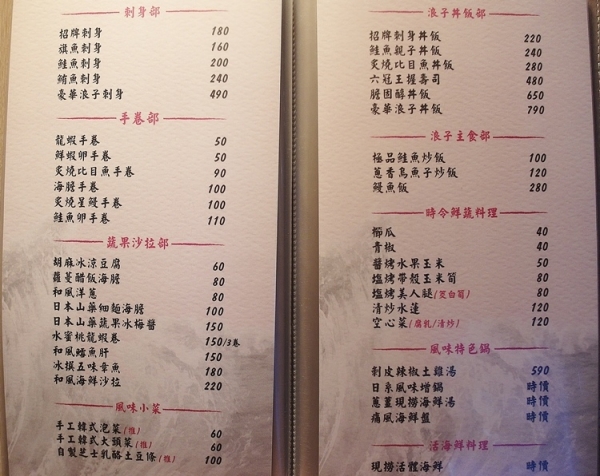 刺身部
招牌刺身 180
旗魚刺身 160
鮭魚刺身 200
鮪魚刺身 240
豪華浪子刺身 490
手卷部
龍蝦手卷 50
鮮蝦卵手卷 50
炙燒比目魚手卷 90
海膽手卷 100
炙燒星鰻手卷 100
鮭魚卵手卷 110
蔬果沙拉部
胡麻冰涼豆腐 60
蘿蔓醋飯海膽 80
和風洋蔥 80
日本山藥細麵海膽 100
日本山藥蔬果冰梅醬 150
水蜜桃龍蝦卷 150/3卷
和風鱈魚肝 150
冰撰五味章魚 180
和風海鮮沙拉 220
風味小菜
手工韓式泡菜(推) 60
手工韓式大頭菜(推) 60
自製芝士乳酪土豆條(推) 100
浪子丼飯部
招牌刺身丼飯 220
鮭魚親子丼飯 240
炙燒比目魚丼飯 280
六冠王握壽司 480
膽固醇丼飯 650
豪華浪子丼飯 790
浪子主食部
極品鮭魚炒飯 100
蔥香烏魚子炒飯 120
鰻魚飯 280
時令鮮蔬料理
櫛瓜 40
青椒 40
醬烤水果玉米 50
塩烤帶殼玉米筍 80
塩烤美人腿(茭白筍) 80
清炒水蓮 120
空心菜(腐乳/清炒) 120
風味特色鍋
剝皮辣椒土雞湯 590
日系風味增鍋 時價
蔥薑現撈海鮮湯 時價
痛風海鮮盤 時價
活海鮮料理
現撈活體海鮮 時價